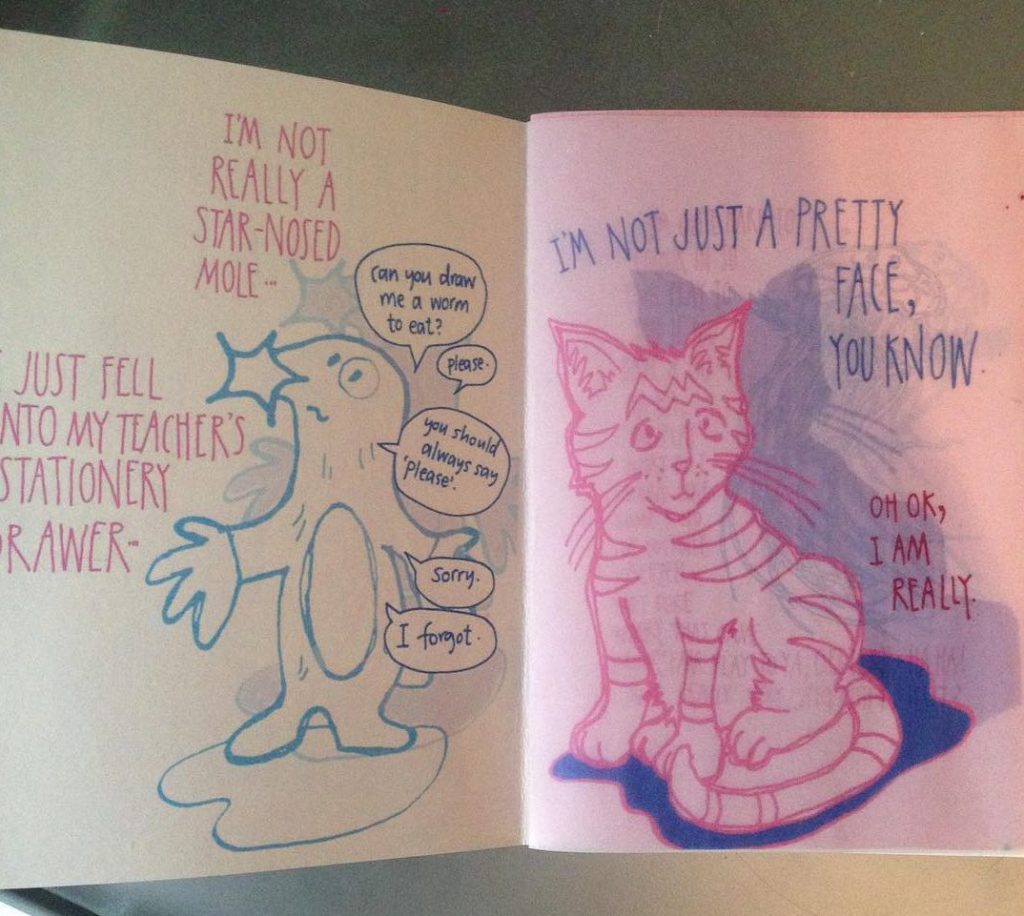 I'M NOT
REALLY A
STAR-NOSED
MOLE...
JUST FELL
INTO MY TEACHER'S
STATIONERY
DRAWER...
can you draw
me a worm
to eat?
please.
you should
always say
'please'.
Sorry.
I forgot.
I'M NOT JUST A PRETTY
FACE,
YOU KNOW.
OH OK,
I AM
REALLY.